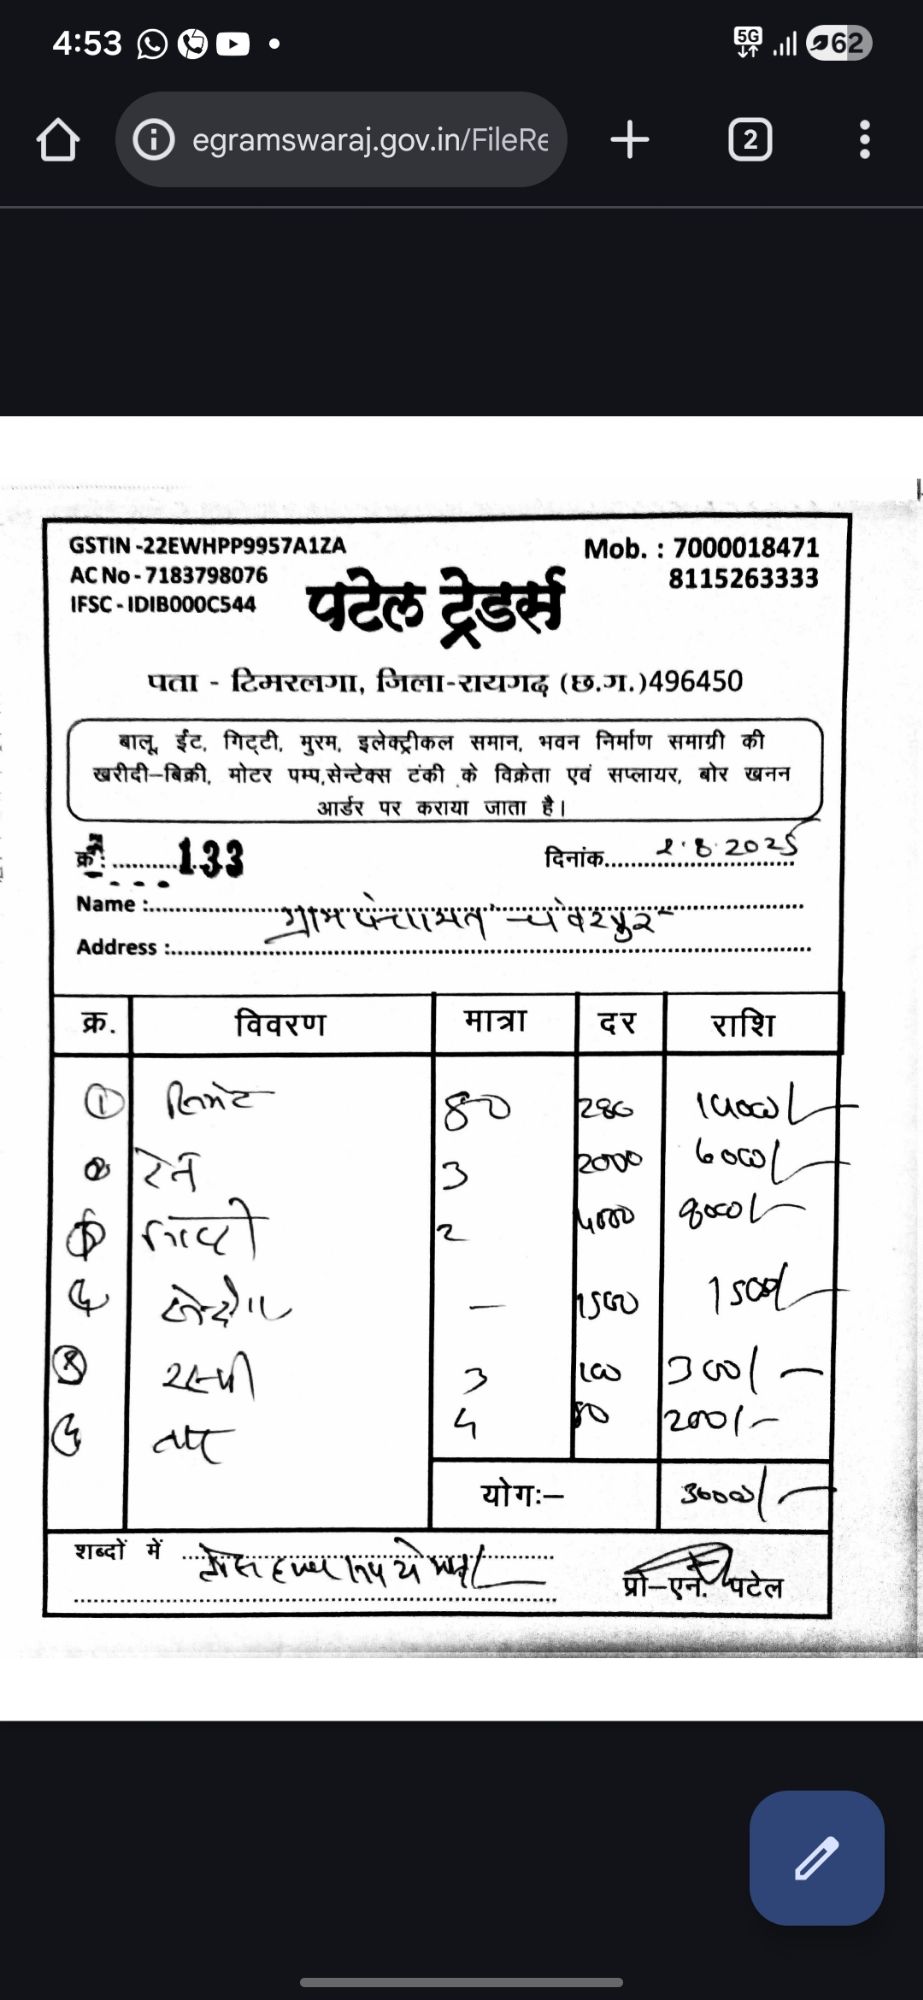 4:53
5G
62
egramswaraj.gov.in/FileRe
2
GSTIN -22EWHPP9957A1ZA
Mob. : 7000018471
AC No - 7183798076
8115263333
IFSC - IDIB000C544
पटेल ट्रेडर्स
पता - टिमरलगा, जिला-रायगढ़ (छ.ग.)496450
बालू, ईंट, गिट्टी, मुरम, इलेक्ट्रीकल समान, भवन निर्माण समाग्री की
खरीदी-बिक्री, मोटर पम्प,सेन्टेक्स टंकी के विक्रेता एवं सप्लायर, बोर खनन
आर्डर पर कराया जाता है।
क्र. 133 दिनांक 2.8.2025
Name : ग्राम पंचायत
Address :
क्र. विवरण मात्रा दर राशि
① 80 280
3 2000 6000/-
2 4000 8000/-
- 1500 1500/-
रस्सी 3 100 300/-
4 200/-
योगः- 36000/-
शब्दों में
प्रो-एन. पटेल